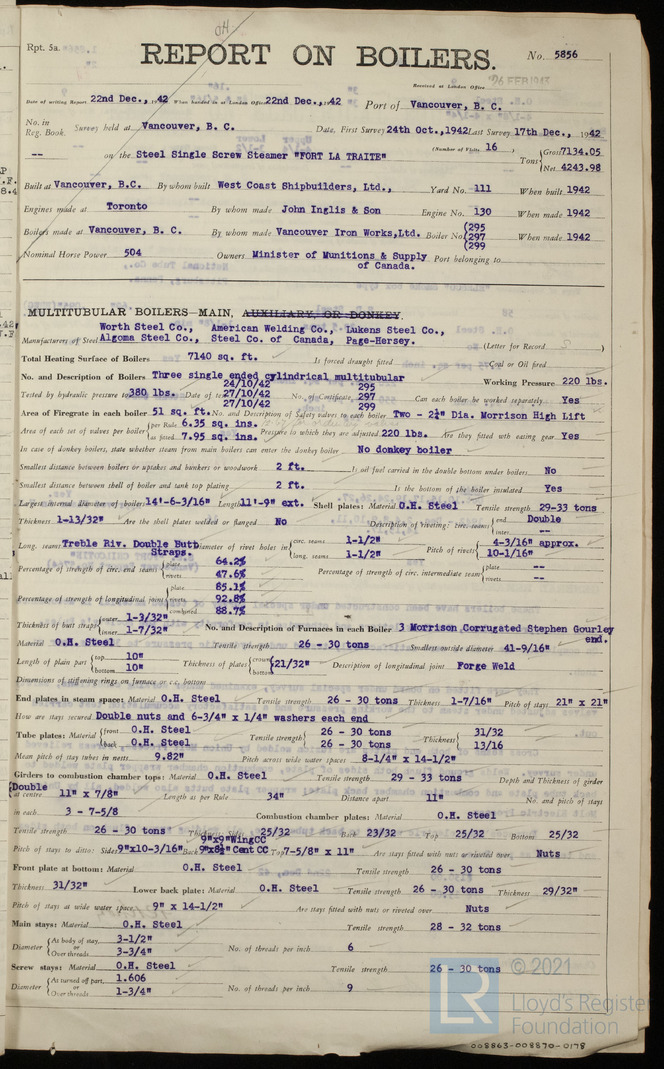 Rpt. 5a.
REPORT ON BOILERS.
No. 5856
Received at London Office 26 FEB 1943
Date of writing Report 22nd Dec., 1942 When handed in at London Office 22nd Dec., 1942 Port of Vancouver, B. C.
No. in Reg. Book. Survey held at Vancouver, B. C. Date, First Survey 24th Oct., 1942 Last Survey 17th Dec., 1942
-- on the Steel Single Screw Steamer "FORT LA TRAITE" (Number of Visits 16 ) Tons {Gross 7134.05 Net 4243.98
Built at Vancouver, B.C. By whom built West Coast Shipbuilders, Ltd., Yard No. 111 When built 1942
Engines made at Toronto By whom made John Inglis & Son Engine No. 130 When made 1942
Boilers made at Vancouver, B. C. By whom made Vancouver Iron Works, Ltd. Boiler No. (295 (297 (299 When made 1942
Nominal Horse Power 504 Owners Minister of Munitions & Supply of Canada. Port belonging to
MULTITUBULAR BOILERS—MAIN, AUXILIARY, OR DONKEY.
Manufacturers of Steel Worth Steel Co., American Welding Co., Lukens Steel Co.,
Algoma Steel Co., Steel Co. of Canada, Page-Hersey. (Letter for Record S )
Total Heating Surface of Boilers 7140 sq. ft. Is forced draught fitted Coal or Oil fired
No. and Description of Boilers Three single ended cylindrical multitubular Working Pressure 220 lbs.
Tested by hydraulic pressure to 380 lbs. Date of test 24/10/42 27/10/42 27/10/42 No. of Certificate 295 297 299 Can each boiler be worked separately Yes
Area of Firegrate in each boiler 51 sq. ft. No. and Description of Safety valves to each boiler Two - 2¼" Dia. Morrison High Lift
Area of each set of valves per boiler {per Rule 6.35 sq. ins. as fitted 7.95 sq. ins. Pressure to which they are adjusted 220 lbs. Are they fitted with easing gear Yes
In case of donkey boilers, state whether steam from main boilers can enter the donkey boiler No donkey boiler
Smallest distance between boilers or uptakes and bunkers or woodwork 2 ft. Is oil fuel carried in the double bottom under boilers No
Smallest distance between shell of boiler and tank top plating 2 ft. Is the bottom of the boiler insulated Yes
Largest internal diameter of boilers 14'-6-3/16" Length 11'-9" ext. Shell plates: Material O.H. Steel Tensile strength 29-33 tons
Thickness 1-13/32" Are the shell plates welded or flanged No Description of riveting: circ. seams {end Double inter. --
Long. seams Treble Riv. Double Butt Straps. Diameter of rivet holes in {circ. seams 1-1/2" long. seams 1-1/2" Pitch of rivets {4-3/16" approx. 10-1/16"
Percentage of strength of circ. end seams {plate 64.2% rivets 47.6% Percentage of strength of circ. intermediate seam {plate -- rivets --
Percentage of strength of longitudinal joint {plate 85.1% rivets 92.8% combined 88.7%
Thickness of butt straps {outer 1-3/32" inner 1-7/32" No. and Description of Furnaces in each Boiler 3 Morrison Corrugated Stephen Gourley end.
Material O.H. Steel Tensile strength 26 - 30 tons Smallest outside diameter 41-9/16"
Length of plain part {top 10" bottom 10" Thickness of plates {crown bottom 21/32" Description of longitudinal joint Forge Weld
Dimensions of stiffening rings on furnace or c.c. bottom
End plates in steam space: Material O.H. Steel Tensile strength 26 - 30 tons Thickness 1-7/16" Pitch of stays 21" x 21"
How are stays secured Double nuts and 6-3/4" x 1/4" washers each end
Tube plates: Material {front O.H. Steel back O.H. Steel Tensile strength {26 - 30 tons 26 - 30 tons Thickness {31/32 13/16
Mean pitch of stay tubes in nests 9.82" Pitch across wide water spaces 8-1/4" x 14-1/2"
Girders to combustion chamber tops: Material O.H. Steel Tensile strength 29 - 33 tons Depth and Thickness of girder
at centre (Double 11" x 7/8" Length as per Rule 34" Distance apart 11" No. and pitch of stays
in each 3 - 7-5/8 Combustion chamber plates: Material O.H. Steel
Tensile strength 26 - 30 tons Thickness: Sides 25/32 Back 23/32 Top 25/32 Bottom 25/32
Pitch of stays to ditto: Sides 9"x10-3/16" Back 9"x9" Wing CC 9"x8½" Cent CC Top 7-5/8" x 11" Are stays fitted with nuts or riveted over Nuts
Front plate at bottom: Material O.H. Steel Tensile strength 26 - 30 tons
Thickness 31/32" Lower back plate: Material O.H. Steel Tensile strength 26 - 30 tons Thickness 29/32"
Pitch of stays at wide water space 9" x 14-1/2" Are stays fitted with nuts or riveted over Nuts
Main stays: Material O.H. Steel Tensile strength 28 - 32 tons
Diameter {At body of stay, 3-1/2" or Over threads 3-3/4" No. of threads per inch 6
Screw stays: Material O.H. Steel Tensile strength 26 - 30 tons
Diameter {At turned off part, 1.606 or Over threads 1-3/4" No. of threads per inch 9
© 2021
LR
Lloyd's Register
Foundation
008863-008870-0178